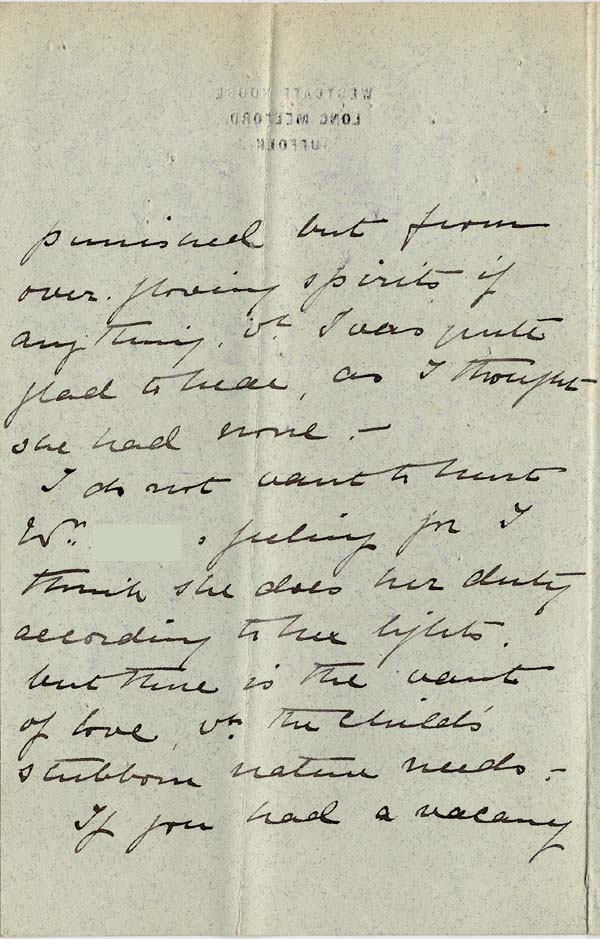 WESTGATE HOUSE
LONG MELFORD
SUFFOLK
punished but from
over-flowing spirits if
anything, wh. I was quite
glad to hear, as I thought
she had none. -
I do not want to hurt
feeling for I
think she does her duty
according to her lights,
but there is the want
of love, wh. the child's
stubborn nature needs -
If you had a vacancy